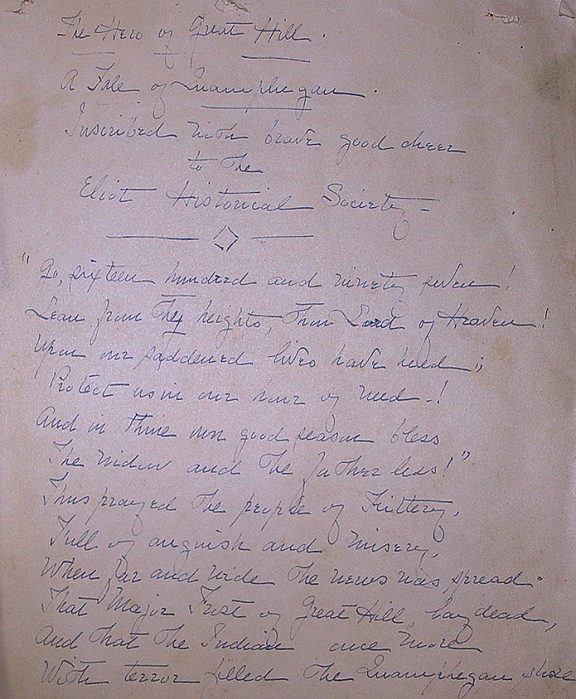 The Hero of Great Hill.
A Tale of Quamphegan.
Inscribed with brave good cheer
to the
Eliot Historical Society—
"Go, sixteen hundred and ninety seven!
Lean from Thy heights, Thou Lord of Heaven!
Upon our saddened lives have heed;
Protect us in our hour of need—!
And in Thine own good season bless
The widow and the fatherless!"
Thus prayed the people of Kittery,
Full of anguish and misery,
When far and wide the news was spread
That Major Frost of Great Hill lay dead,
And that the Indian once more
With terror filled the Quamphegan shore